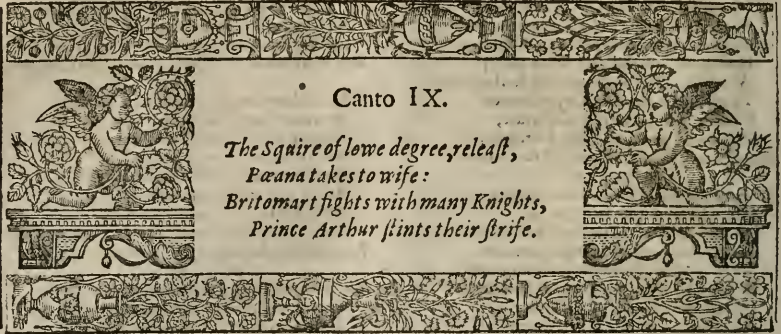 Canto IX.
The Squire of lowe degree, releaſt,
Pœana takes to wife:
Britomart fights with many Knights,
Prince Arthur ſtints their ſtrife.